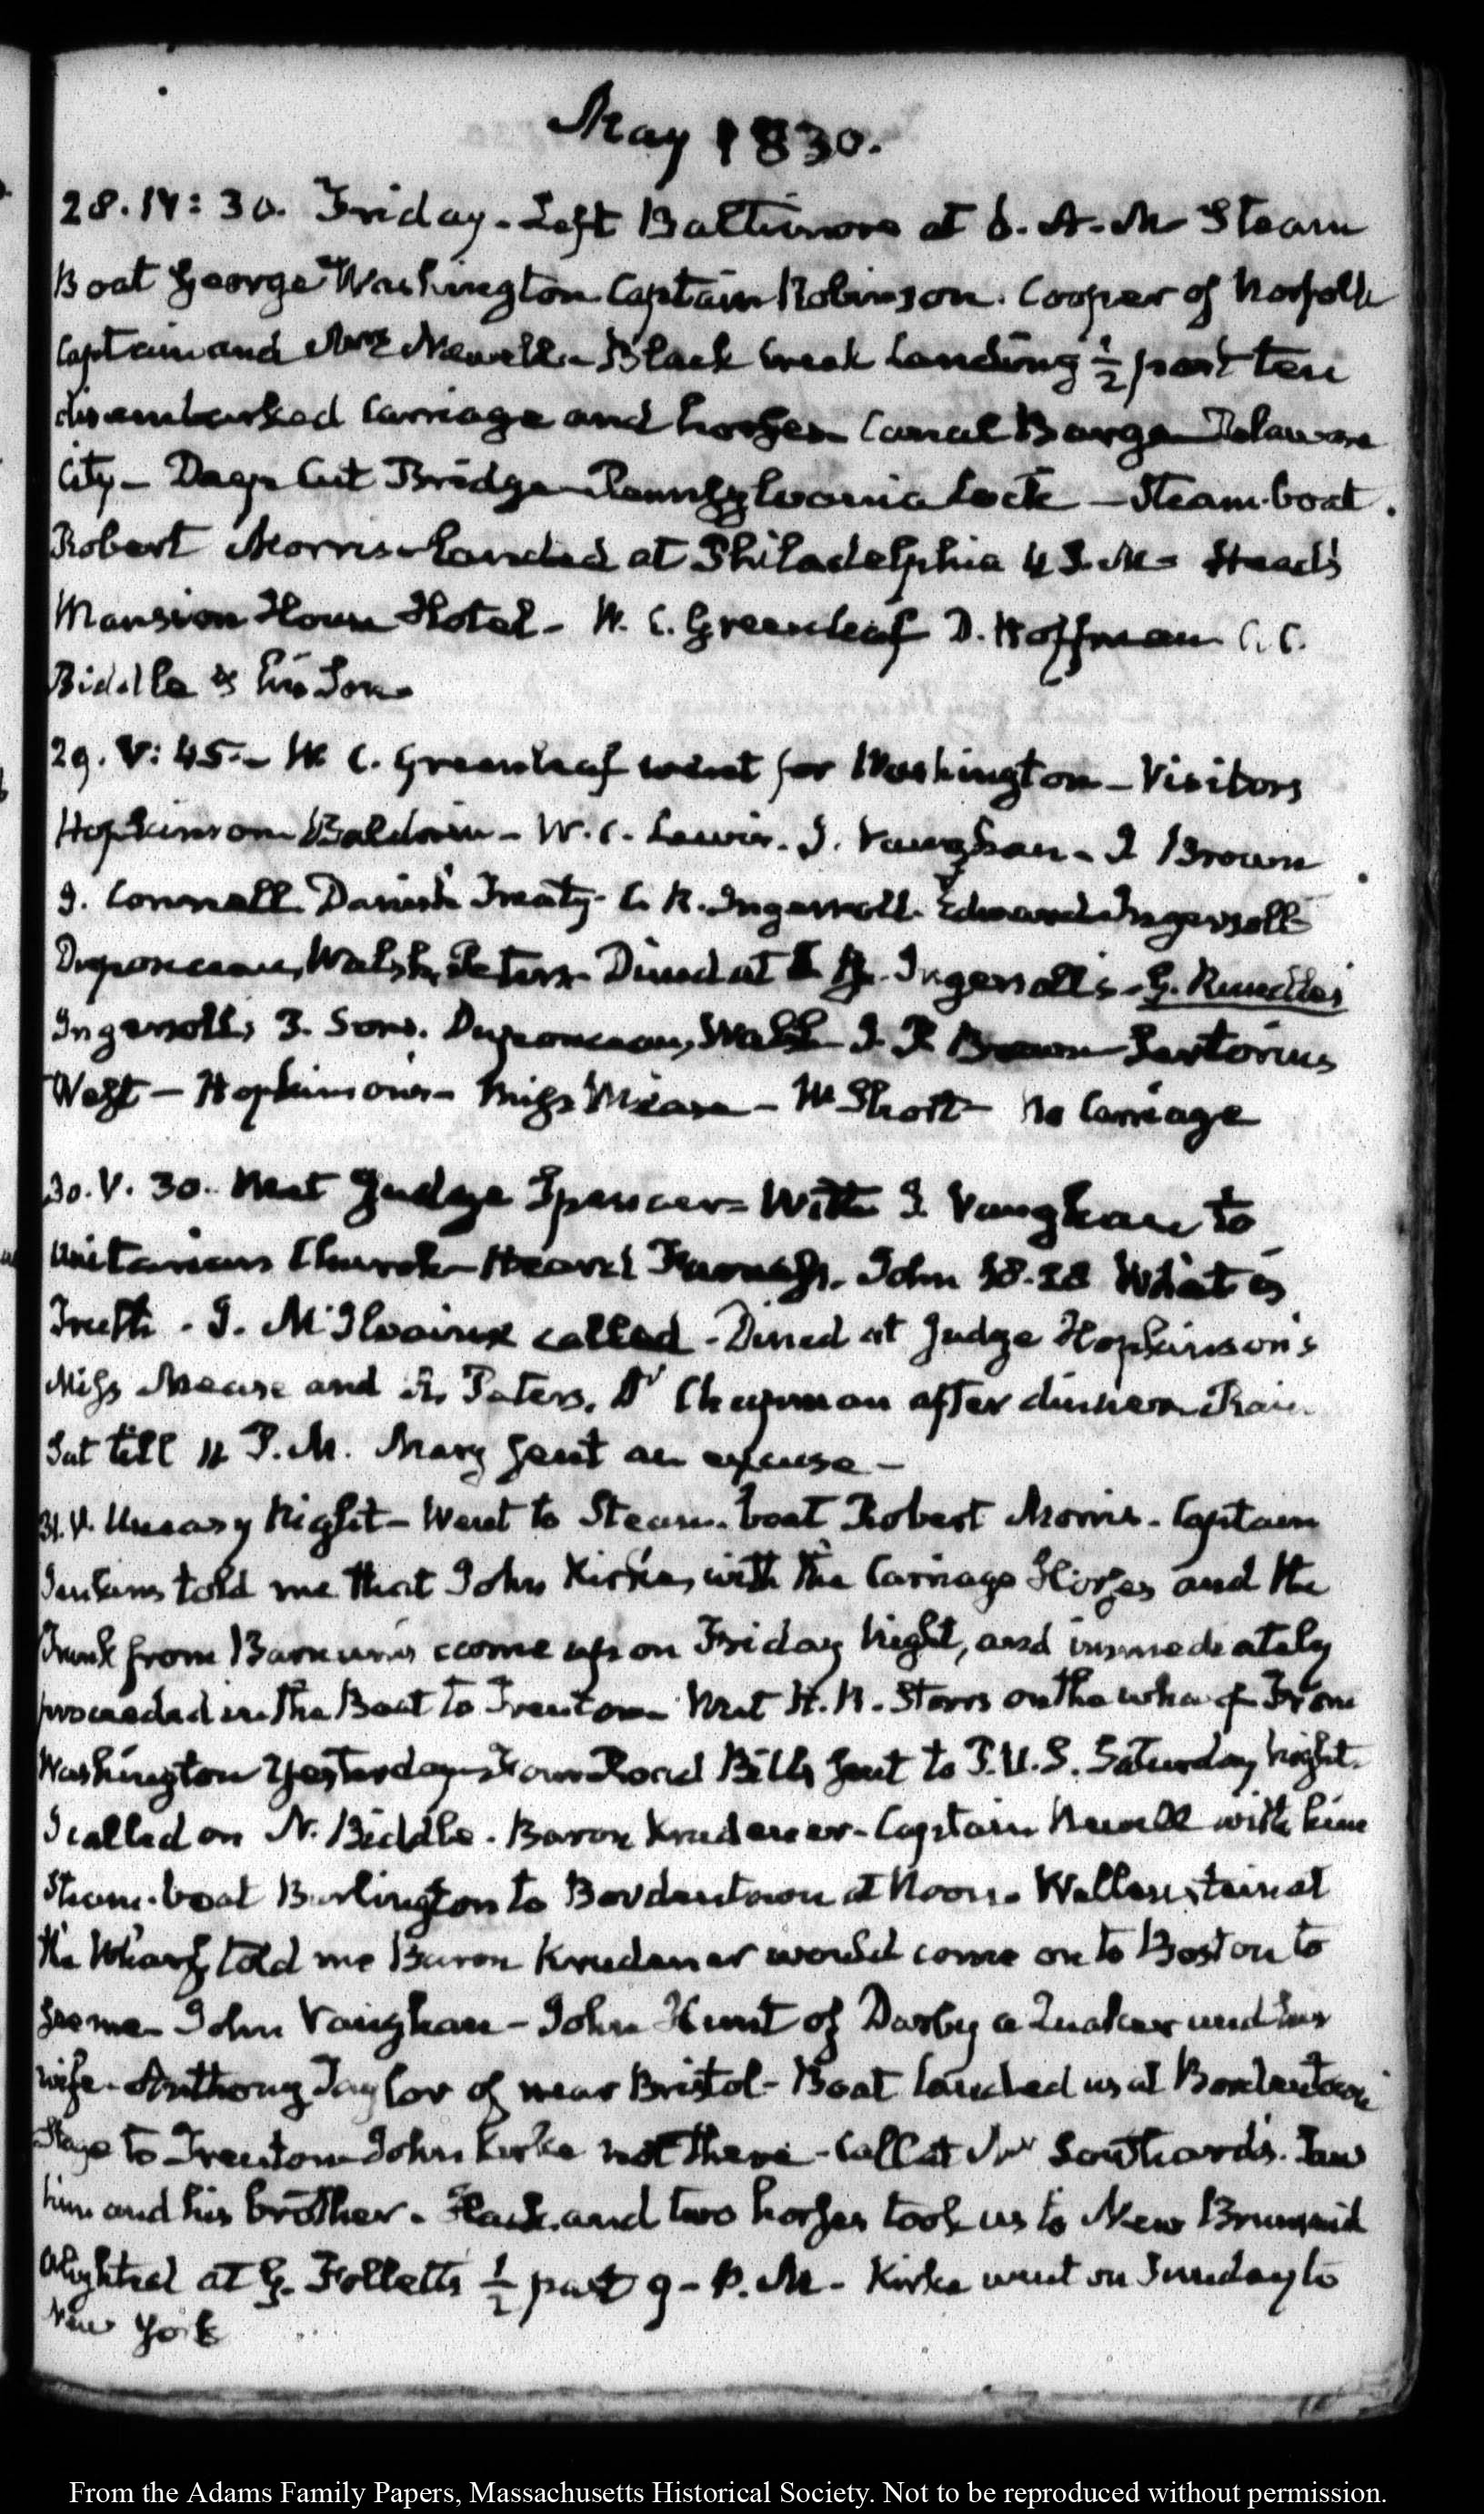 May 1830.
28. IV: 30. Friday - Left Baltimore at 6. A. M. Steam
Boat George Washington Captain Robinson. Cooper of Norfolk
Captain and Mrs Newell - Black Creek Landing ½ past ten
disembarked carriage and horses - Canal Barge - Delaware
City - Deep Cut Bridge - Pennsylvania Lock - Steam-boat
Robert Morris - landed at Philadelphia 4 P. M. Head's
Mansion House Hotel - W. C. Greenleaf D. Hoffman C. C.
Biddle & his Son
29. V: 45. - W. C. Greenleaf went for Washington - Visitors
Hopkinson Baldwin - W. C. Lewis. J. Vaughan - J Brown
J. Connell Danish Treaty - C. R. Ingersoll. Edward Ingersoll
Duponceau, Walsh, Peters - Dined at Ingersoll's - G. Rundles
Ingersoll's 3. Sons. Duponceau, Walsh J. P. Brown - Sartorius
West - Hopkinson's - Miss Mease - W Short - No Carriage
30. V. 30. Met Judge Spencer - With J. Vaughan to
Unitarian Church - Heard Furness. John 18. 38 What is
Truth - J. McIlvaine called - Dined at Judge Hopkinson's
Miss Mease and R. Peters, Dr Chapman after dinner - Rain
Sat till 11 P. M. Mary sent an excuse -
31. V. Uneasy Night - Went to Steam-boat Robert Morris - Captain
Jenkins told me that John Kirke, with the Carriage Horses and the
Trunk from Barnum's came up on Friday Night, and immediately
proceeded in the Boat to Trenton - Met H. R. Storrs on the wharf - From
Washington Yesterday - Four Road Bills sent to P. U. S. Saturday Night.
I called on N. Biddle. Baron Krudener - Captain Newell with him
Steam-boat Burlington to Bordentown at Noon. Wallenstein at
the Wharf, told me Baron Krudener would come on to Boston to
see me - John Vaughan - John Hunt of Darby a Quaker and his
wife. Anthony Taylor of near Bristol - Boat landed us at Bordentown
Stage to Trenton John Kirke not there - Call at Mr Southard's. Saw
him and his brother. Hack and two horses took us to New Brunswick
Alighted at G. Follett's ½ past 9 - P. M. - Kirke went on Sunday to
New York
From the Adams Family Papers, Massachusetts Historical Society. Not to be reproduced without permission.